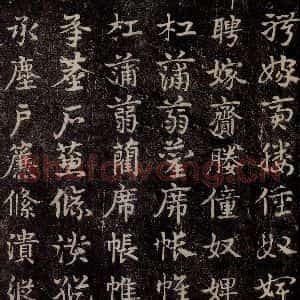 聘嫁齎媵僮奴婢
聘嫁齎媵僮奴婢
杠蒲蒻藺席帳帷
杠蒲蒻藺席帳帷
承塵戶簾絛潰
承塵戶簾絛潰
Shufawang.cn